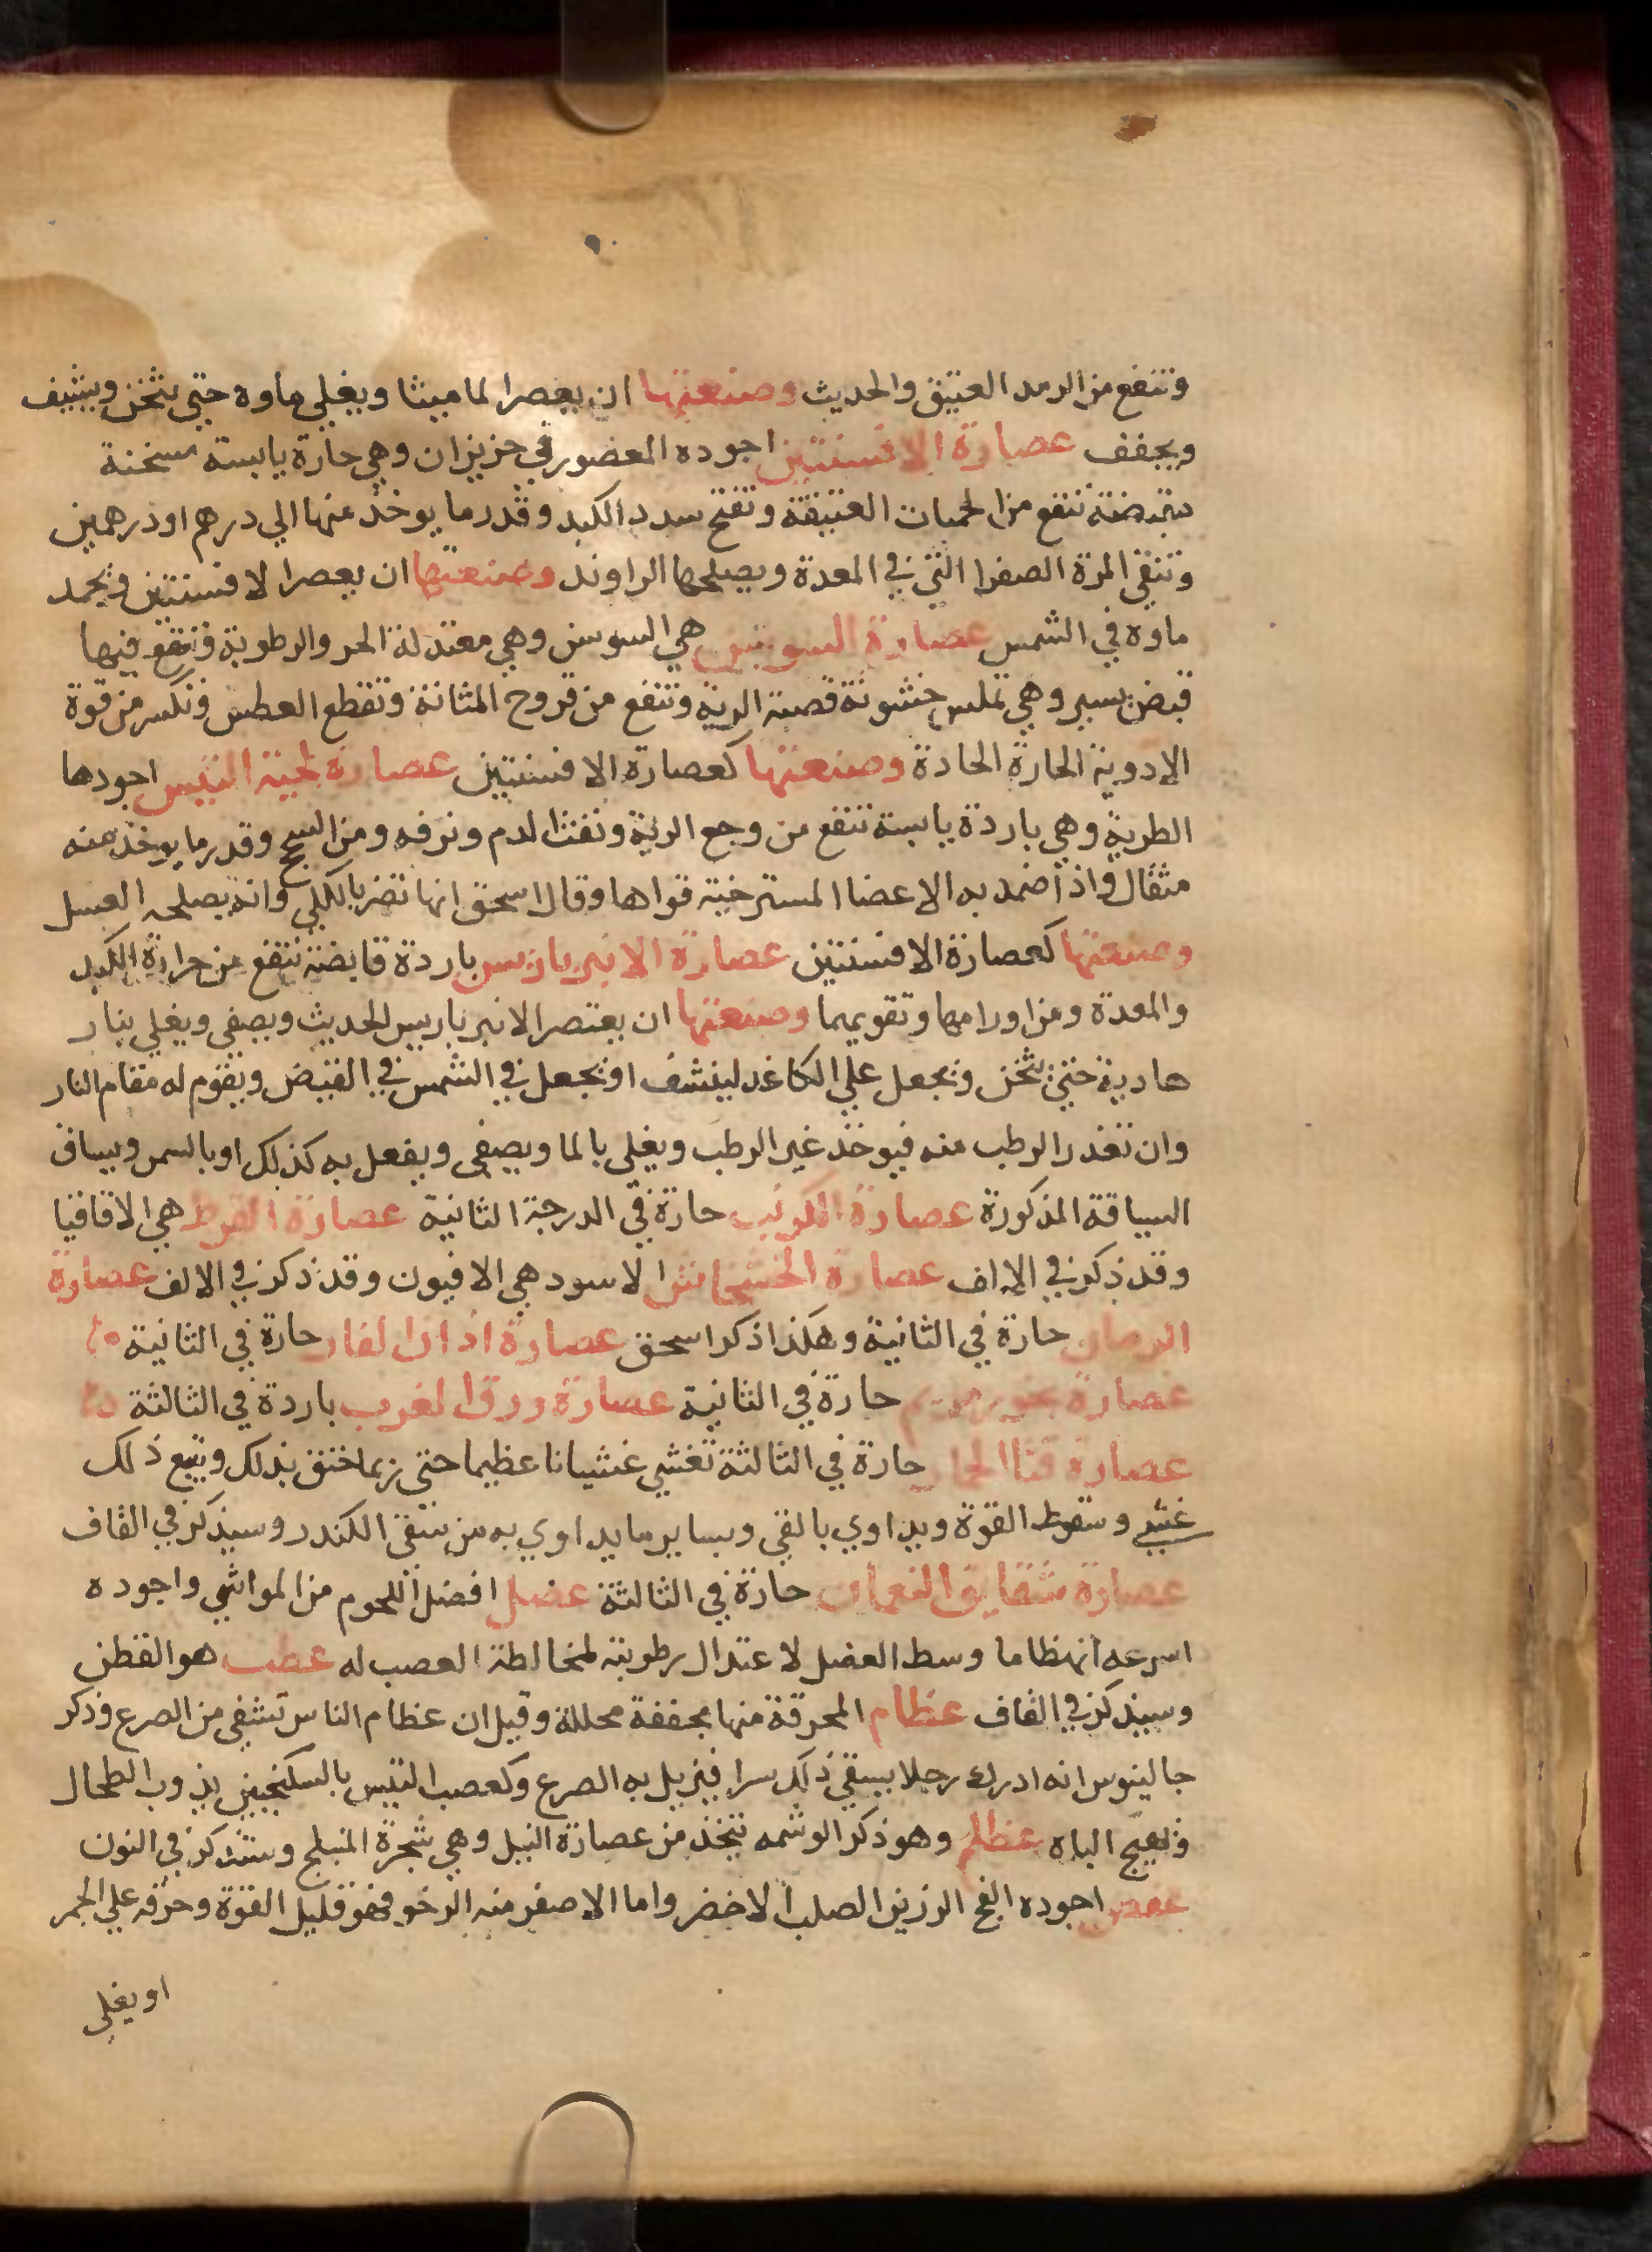 وتنفع من الرمد العتيق والحديث وصنعتها ان يعصر الماميثا ويغلي ماوه حتى يثخن ويشيف
ويجفف عصارة الافسنتين اجوده المعضور في حزيران وهي حارة يابسة مسخنة
تنفع من الحميات العتيقة وتفتح سدد الكبد وقدر ما يوخذ منها الي درهم او درهمين
وتنقي المرة الصفرا التي في المعدة ويصلحها الراوند وصنعتها ان يعصر الافسنتين ويجمد
ماوه في الشمس عصارة السوس هي السوسن وهي معتدلة الحر والرطوبة وتنفع فيها
قبض يسير وهي تملس خشونة قصبة الرية وتنفع من قروح المثانة وتقطع العطش وتكسر من قوة
الادوية الحارة الحادة وصنعتها كعصارة الافسنتين عصارة لحية التيس اجودها
الطرية وهي باردة يابسة تنفع من وجع الرية ونفث الدم ونزفه ومن السحج وقدر ما يوخذ منه
مثقال واذا ضمد به الاعضا المسترخية قواها وقال اسحق انها تضر بالكلي وانه يصلحه العسل
وصنعتها كعصارة الافسنتين عصارة الانبرباريس باردة قابضة تنفع من حرارة الكبد
والمعدة ومن اورامها وتقويهما وصنعتها ان يعتصر الانبرباريس الحديث ويصفى ويغلي بنار
هادية حتى يثخن ويجعل على الكاغد لينشف او يجعل في الشمس في القيض ويقوم له مقام النار
وان تعذر الرطب منه فيوخذ غير الرطب ويغلي بالما ويصفى ويفعل به كذلك او بالشمس ويساق
السياقة المذكورة عصارة الكرنب حارة في الدرجة الثانية عصارة القرط هي الاقاقيا
وقد ذكر في الالف عصارة الخشخاش الاسود هي الافيون وقد ذكر في الالف عصارة
الرمان حارة في الثانية وهكذا ذكر اسحق عصارة اذان الفار حارة في الثانية
عصارة بخور مريم حارة في الثانية عصارة ورق الغرب باردة في الثالثة
عصارة قثا الحمار حارة في الثالثة تغشي غشيانا عظيما حتى ربما خنق بذلك ويتبع ذلك
غشي وسقوط القوة ويداوي بالقي وبساير ما يداوي به من سقي الكندر وسيذكر في القاف
عصارة شقايق النعمان حارة في الثالثة عضل افضل اللحوم من المواشي واجوده
اسرعه انهظاما وسط العضل لاعتدال رطوبته لمخالطة العصب له عطب هو القطن
وسيذكر في القاف عظام المحرقة منها مجففة محللة وقيل ان عظام الناس تشفي من الصرع وذكر
جالينوس انه ادرك رجلا يسقي ذلك سرا فيزيل به الصرع وكعصب التيس بالسكنجبين يذوب الطحال
ويهيج الباه عظلم وهو ذكر الوشمه يتخذ من عصارة النيل وهي شجرة النيلج وستذكر في النون
عفص اجوده الفج الرزين الصلب الاخضر واما الاصفر منه الرخو فهو قليل القوة وحرقه علي الجمر
او يغلي